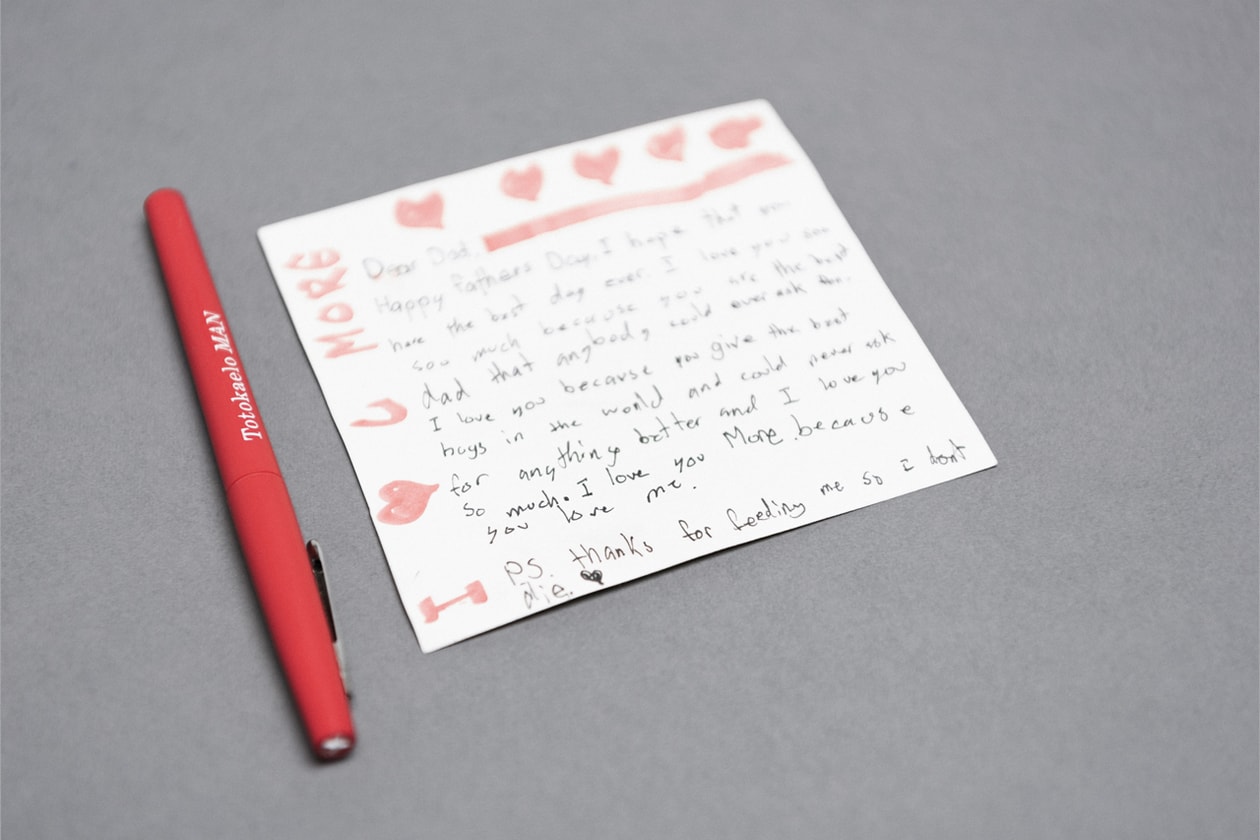 Totokaelo MAN
I ♥ U MORE
Dear Dad,
Happy Fathers Day. I hope that
have the best day ever. I love you soo
soo much because you are the best
dad that anybody could ever ask for.
I love you because you give the best
hugs in the world and could never ask
for anything better and I love you
so much. I love you More because
you love me.
PS. thanks for feeding me so I dont
die. ♥